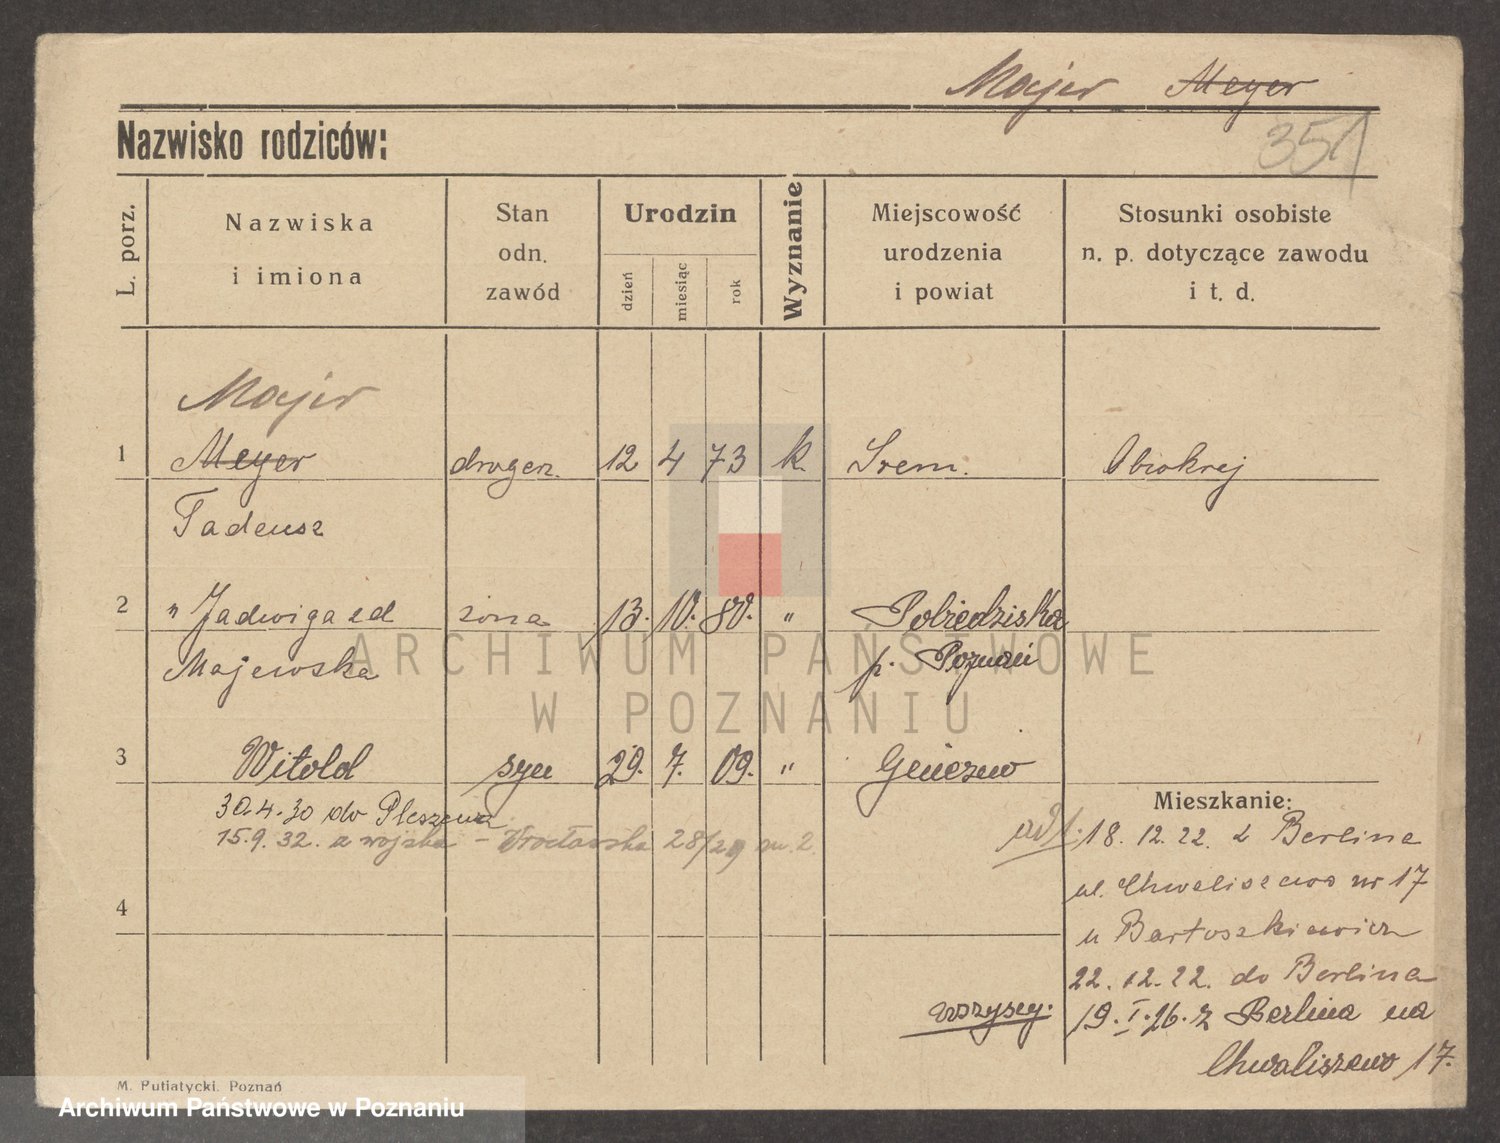 Majer Meyer
Nazwisko rodziców:
351
L. porz.
Nazwiska
i imiona
Stan
odn.
zawód
Urodzin
dzień
miesiąc
rok
Wyznanie
Miejscowość
urodzenia
i powiat
Stosunki osobiste
n. p. dotyczące zawodu
i t. d.
Majer
1 Meyer drogerz. 12 4 73 k. Srem. Obiokrej
Tadeusz
2 " Jadwiga zd żona 13. 10. 80. " Pobiedziska
Majewska p. Poznań
3 Witold syn 29. 7. 09. " Gniezno
30.4.30 do Pleszewa
15.9.32. z wojska – Wrocławska 28/29 m. 2.
4
Mieszkanie:
adt. 18. 12. 22. z Berlina
ul. Chwaliszewo nr 17
u Bartoszkiewicz
22. 12. 22. do Berlina
wszyscy: 19. I. 26. z Berlina na
Chwaliszewo 17.
M. Putiatycki, Poznań
ARCHIWUM PAŃSTWOWE
W POZNANIU
Archiwum Państwowe w Poznaniu